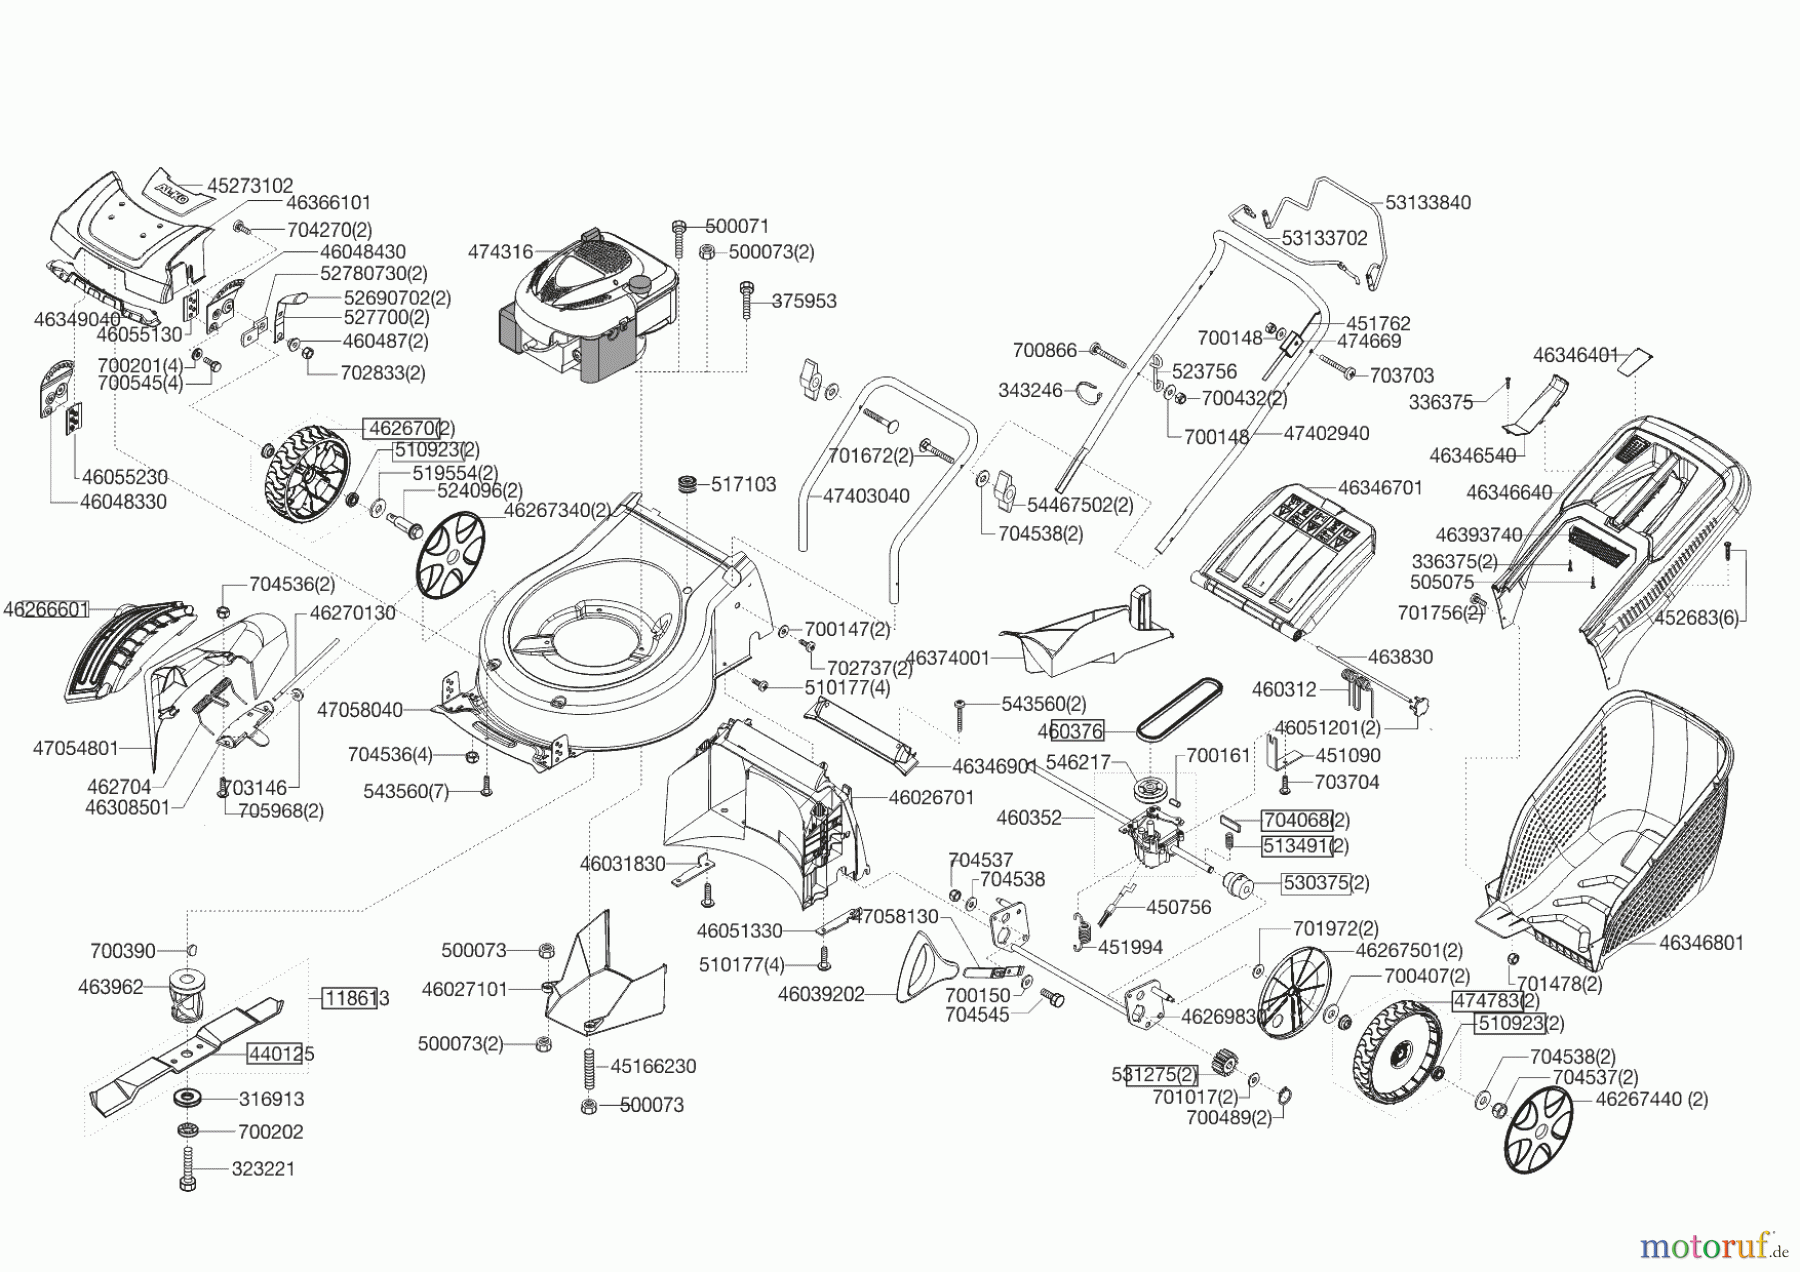 45273102
46366101
704270(2)
46048430
52780730(2)
52690702(2)
527700(2)
460487(2)
702833(2)
46349040
46055130
700201(4)
700545(4)
46055230
46048330
ALKO
462670(2)
510923(2)
519554(2)
524096(2)
46267340(2)
474316
500071
500073(2)
375953
517103
701672(2)
47403040
54467502(2)
704538(2)
700866
343246
523756
700432(2)
700148
700148
451762
474669
703703
47402940
53133840
53133702
46346401
336375
46346540
46346640
46393740
336375(2)
505075
701756(2)
452683(6)
46346701
463830
460312
46051201(2)
451090
703704
704536(2)
46266601
46270130
47054801
462704
46308501
703146
705968(2)
47058040
704536(4)
543560(7)
700147(2)
702737(2)
510177(4)
46374001
543560(2)
46346901
46026701
460376
546217
700161
460352
704068(2)
513491(2)
530375(2)
450756
451994
46031830
46051330
510177(4)
704537
704538
47058130
46039202
700150
704545
46269830
701972(2)
46267501(2)
700407(2)
474783(2)
510923(2)
704538(2)
704537(2)
46267440 (2)
531275(2)
701017(2)
700489(2)
701478(2)
46346801
700390
463962
118613
440125
316913
700202
323221
500073
46027101
500073(2)
45166230
500073
motoruf.de